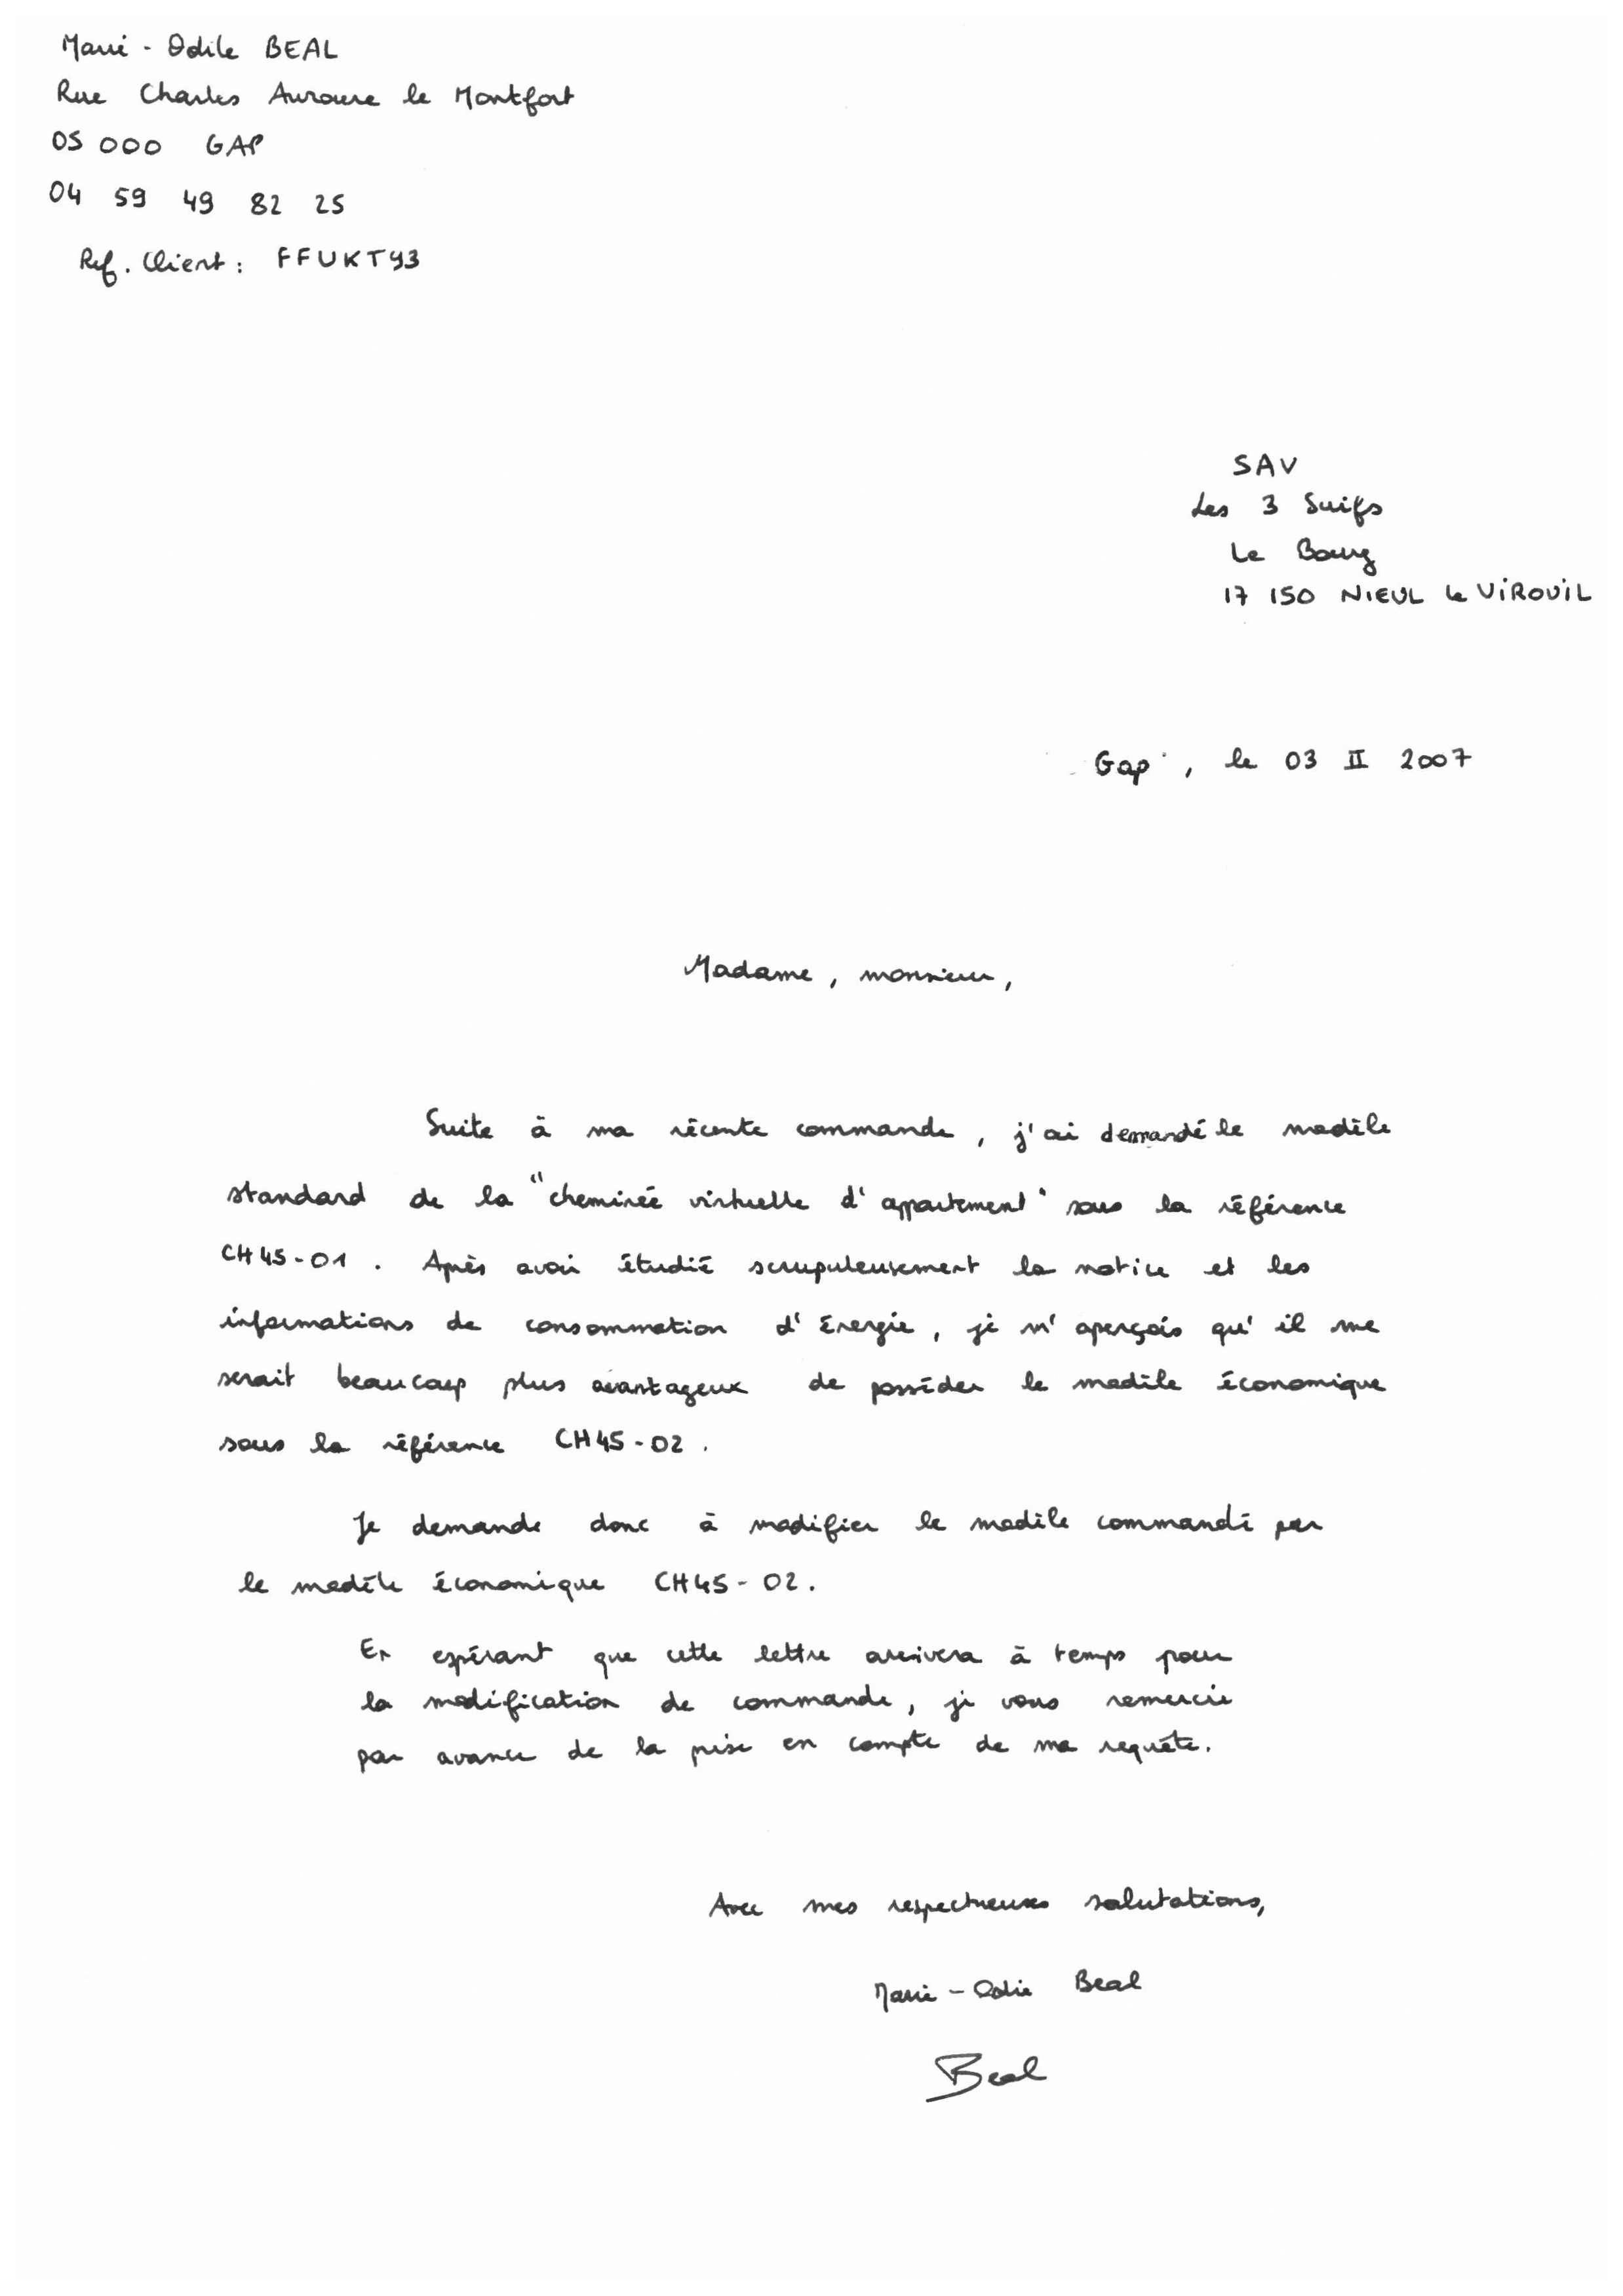 Marie - Odile BEAL
Rue Charles Auroure le Montfort
05 000 GAP
04 59 49 82 25
Ref. Client : FFUKTY3
SAV
Les 3 Suifs
Le Bourg
17 150 NIEUL le VIROUIL
Gap, le 03 II 2007
Madame, monsieur,
Suite à ma récente commande, j'ai demandé le modèle
standard de la "cheminée virtuelle d'appartement" sous la référence
CH45-01. Après avoir étudié scrupuleusement la notice et les
informations de consommation d'énergie, je m'aperçois qu'il me
serait beaucoup plus avantageux de posséder le modèle économique
sous la référence CH45-02.
Je demande donc à modifier le modèle commandé par
le modèle économique CH45-02.
En espérant que cette lettre arrivera à temps pour
la modification de commande, je vous remercie
par avance de la prise en compte de ma requête.
Avec mes respectueuses salutations,
Marie - Odie Beal
Beal